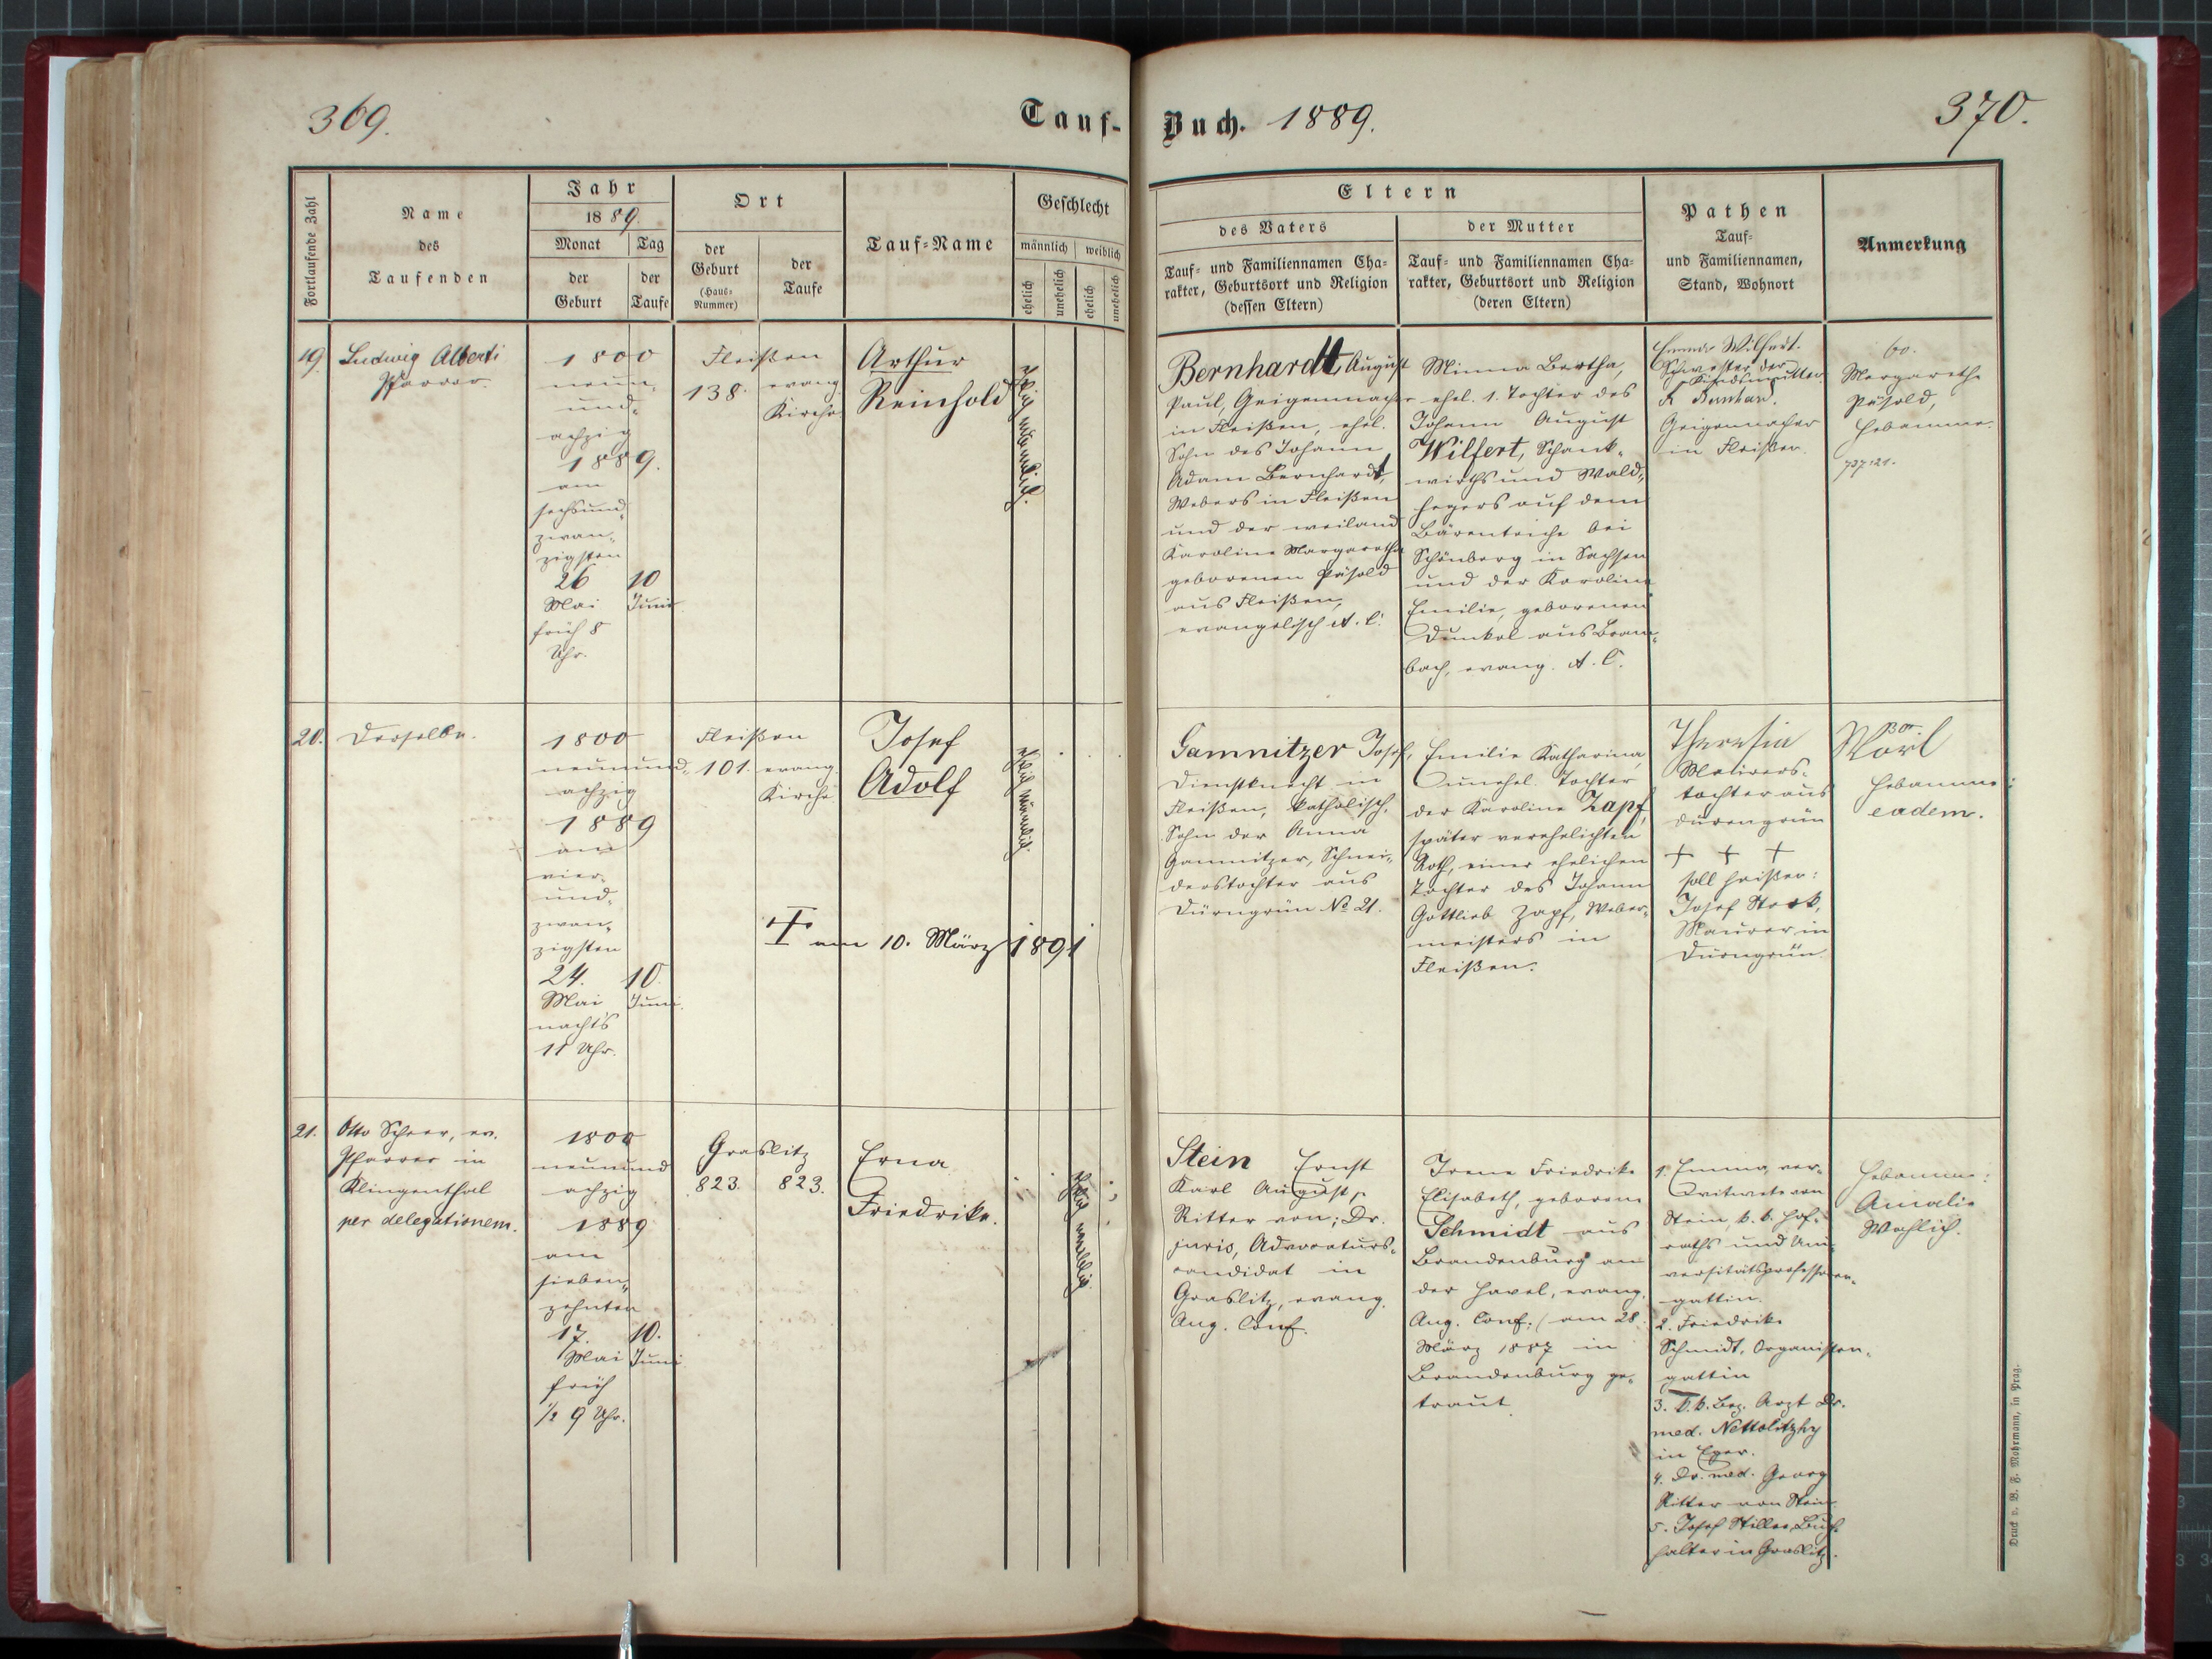 369.
Tauf-
Buch. 1889.
370.
Fortlaufende Zahl
Name
des
Taufenden
Jahr
1889.
Monat
der
Geburt
Tag
der
Taufe
Ort
der
Geburt
(Haus-
Nummer)
der
Taufe
Tauf-Name
Geschlecht
männlich
weiblich
ehelich
unehelich
ehelich
unehelich
Eltern
des Vaters
Tauf- und Familiennamen Cha-
rakter, Geburtsort und Religion
(dessen Eltern)
der Mutter
Tauf- und Familiennamen Cha-
rakter, Geburtsort und Religion
(deren Eltern)
Pathen
Tauf-
und Familiennamen,
Stand, Wohnort
Anmerkung
19.
Ludwig Alberti
Pfarrer
1800
neun-
und-
achzig
1889.
am
sechsund-
zwan-
zigsten
26
Mai
früh 8
Uhr.
10
Juni
Fleißen
138.
evang.
Kirche
Arthur
Reinhold
ehelich männlich.
Bernhardt August
Paul, Geigenmacher
in Fleißen, ehel.
Sohn des Johann
Adam Bernhardt,
Webers in Fleißen
und der weiland
Karoline Margaretha
geborenen Päsold
aus Fleißen,
evangelisch A. C.
Minna Bertha,
ehel. 1. Tochter des
Johann August
Wilfert, Schank-
wirths und Wald-
hegers auf dem
Bärenteiche bei
Schönberg in Sachsen
und der Karoline
Emilie, geborenen
Dunkel aus Bram-
bach, evang. A. C.
Wilfert.
Schwester der
Kindsmutter
Geigenmacher
in Fleißen.
60.
Margarethe
Päsold,
Hebamme.
20.
Derselbe.
1800
neunund-
achzig
1889
am
vier-
und-
zwan-
zigsten
24.
Mai
nachts
11 Uhr.
10.
Juni.
Fleißen
101.
evang.
Kirche
Josef
Adolf
ehelich männlich.
am 10. März 1891
Gamnitzer Josef,
Dienstknecht in
Fleißen, katholisch.
Sohn der Anna
Gamnitzer, Schnei-
derstochter aus
Dürngrün No 21.
Emilie Katharina,
unehel. Tochter
der Karoline Zapf,
später verehelichten
Roth, einer ehelichen
Tochter des Johann
Gottlieb Zapf, Weber-
meisters in
Fleißen.
Theresia Wörl
Maurers-
tochter aus
Dürengrün
+ + +
soll heißen:
Josef Stark,
Maurer in
Dürngrün.
Hebamme:
eadem.
21.
Otto Scheer, ev.
Pfarrer in
Klingenthal
per delegationem.
1800
neunund
achzig
1889
am
sieben-
zehnten
17.
Mai
früh
1/2 9 Uhr.
10.
Juni
Graslitz
823.
823.
Erna
Friedrike.
ehelich weiblich
Stein Ernst
Karl August,
Ritter von; Dr.
juris, Advocaturs-
candidat in
Graslitz, evang.
Aug. Conf.
Irene Friedrike
Elisabeth, geborene
Schmidt aus
Brandenburg an
der Havel, evang.
Aug. Conf. (am 28.
März 1887 in
Brandenburg ge-
traut
1. Emma, ver-
witwete von
Stein, k. k. Hof-
raths und Uni-
versitätsprofessoren-
gattin.
2. Friedrike
Schmidt, Organisten-
gattin
3. k. k. Bez. Arzt Dr.
med. Nettolitzky
in Eger.
4. Dr. med. Georg
Ritter von Stein
5. Josef Stiller, Buch-
halter in Graslitz.
Hebamme:
Amalie
Wohlich.
Druck v. B. F. Mohrmann, in Prag.